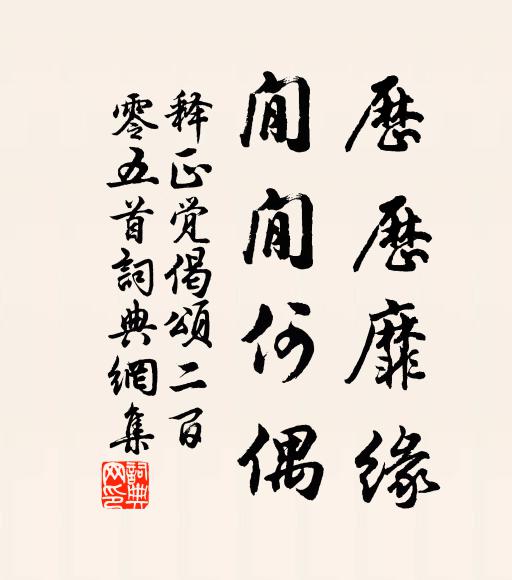 歷歷靡緣
閒閒何偶
释正觉偈頌二百
零五首詞典網集
詞典网印